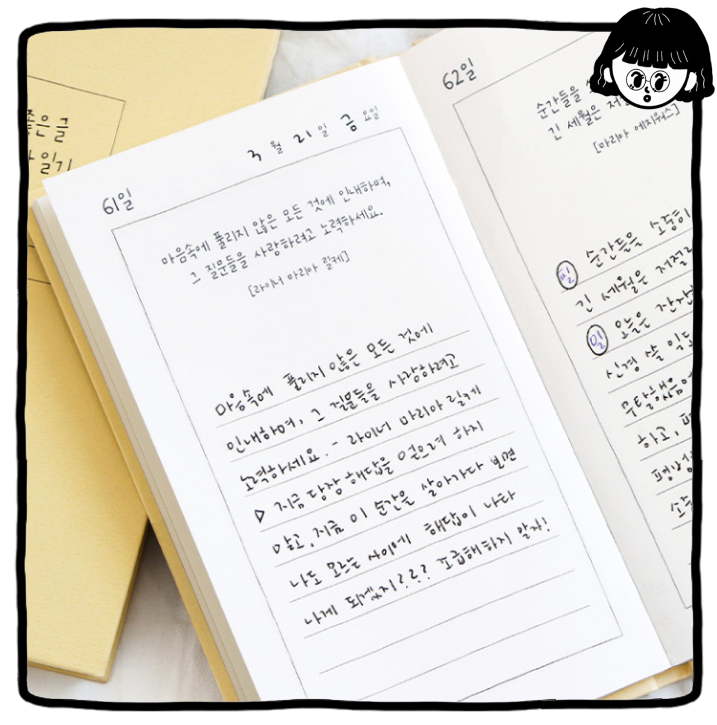 좋은글
일기
61일
3 월 21 일 금 요일
마음속에 풀리지 않은 모든 것에 인내하며,
그 질문들을 사랑하려고 노력하세요.
[라이너 마리아 릴케]
마음속에 풀리지 않은 모든 것에
인내하며, 그 질문들을 사랑하려고
노력하세요. - 라이너 마리아 릴케
▷ 지금 당장 해답을 얻으려 하지
말고, 지금 이 순간을 살아가다 보면
나도 모르는 사이에 해답이 나타
나게 되겠지??? 조급해하지 말자!
62일
순간들을
긴 세월은 저
[마리아 에지워스]
필 순간들을 소중히
긴 세월은 저절로
오늘은 잔잔
신경 쓸 일도
무탈했음에
하고,
평범
소